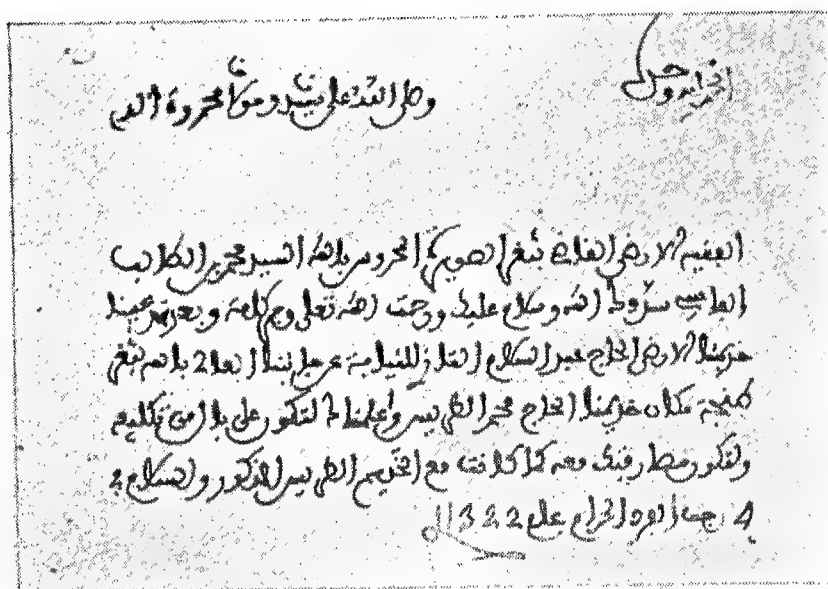 الحمد لله وحده
وصلى الله على سيدنا ومولانا محمد وآله
الفقيه الارضى القاضي بثغر الصويرة المحروس بالله السيد محمد بن الطالب
الفاسي سددك الله وسلام عليك ورحمت الله تعلى وبركاته وبعد فقد عينا
خديمنا الارضى الحاج عبد السلام التازي للنيابة عن جلبنا العالي بالله بثغر
طنجة مكان خديمنا الحاج محمد الطريس وأعلمناك لتكون على بال من تكليفه
ولتكون مطارقتك معه كما كانت مع الخديم الطريس المذكور والسلام في
4 رجب الفرد الحرام عام 1322